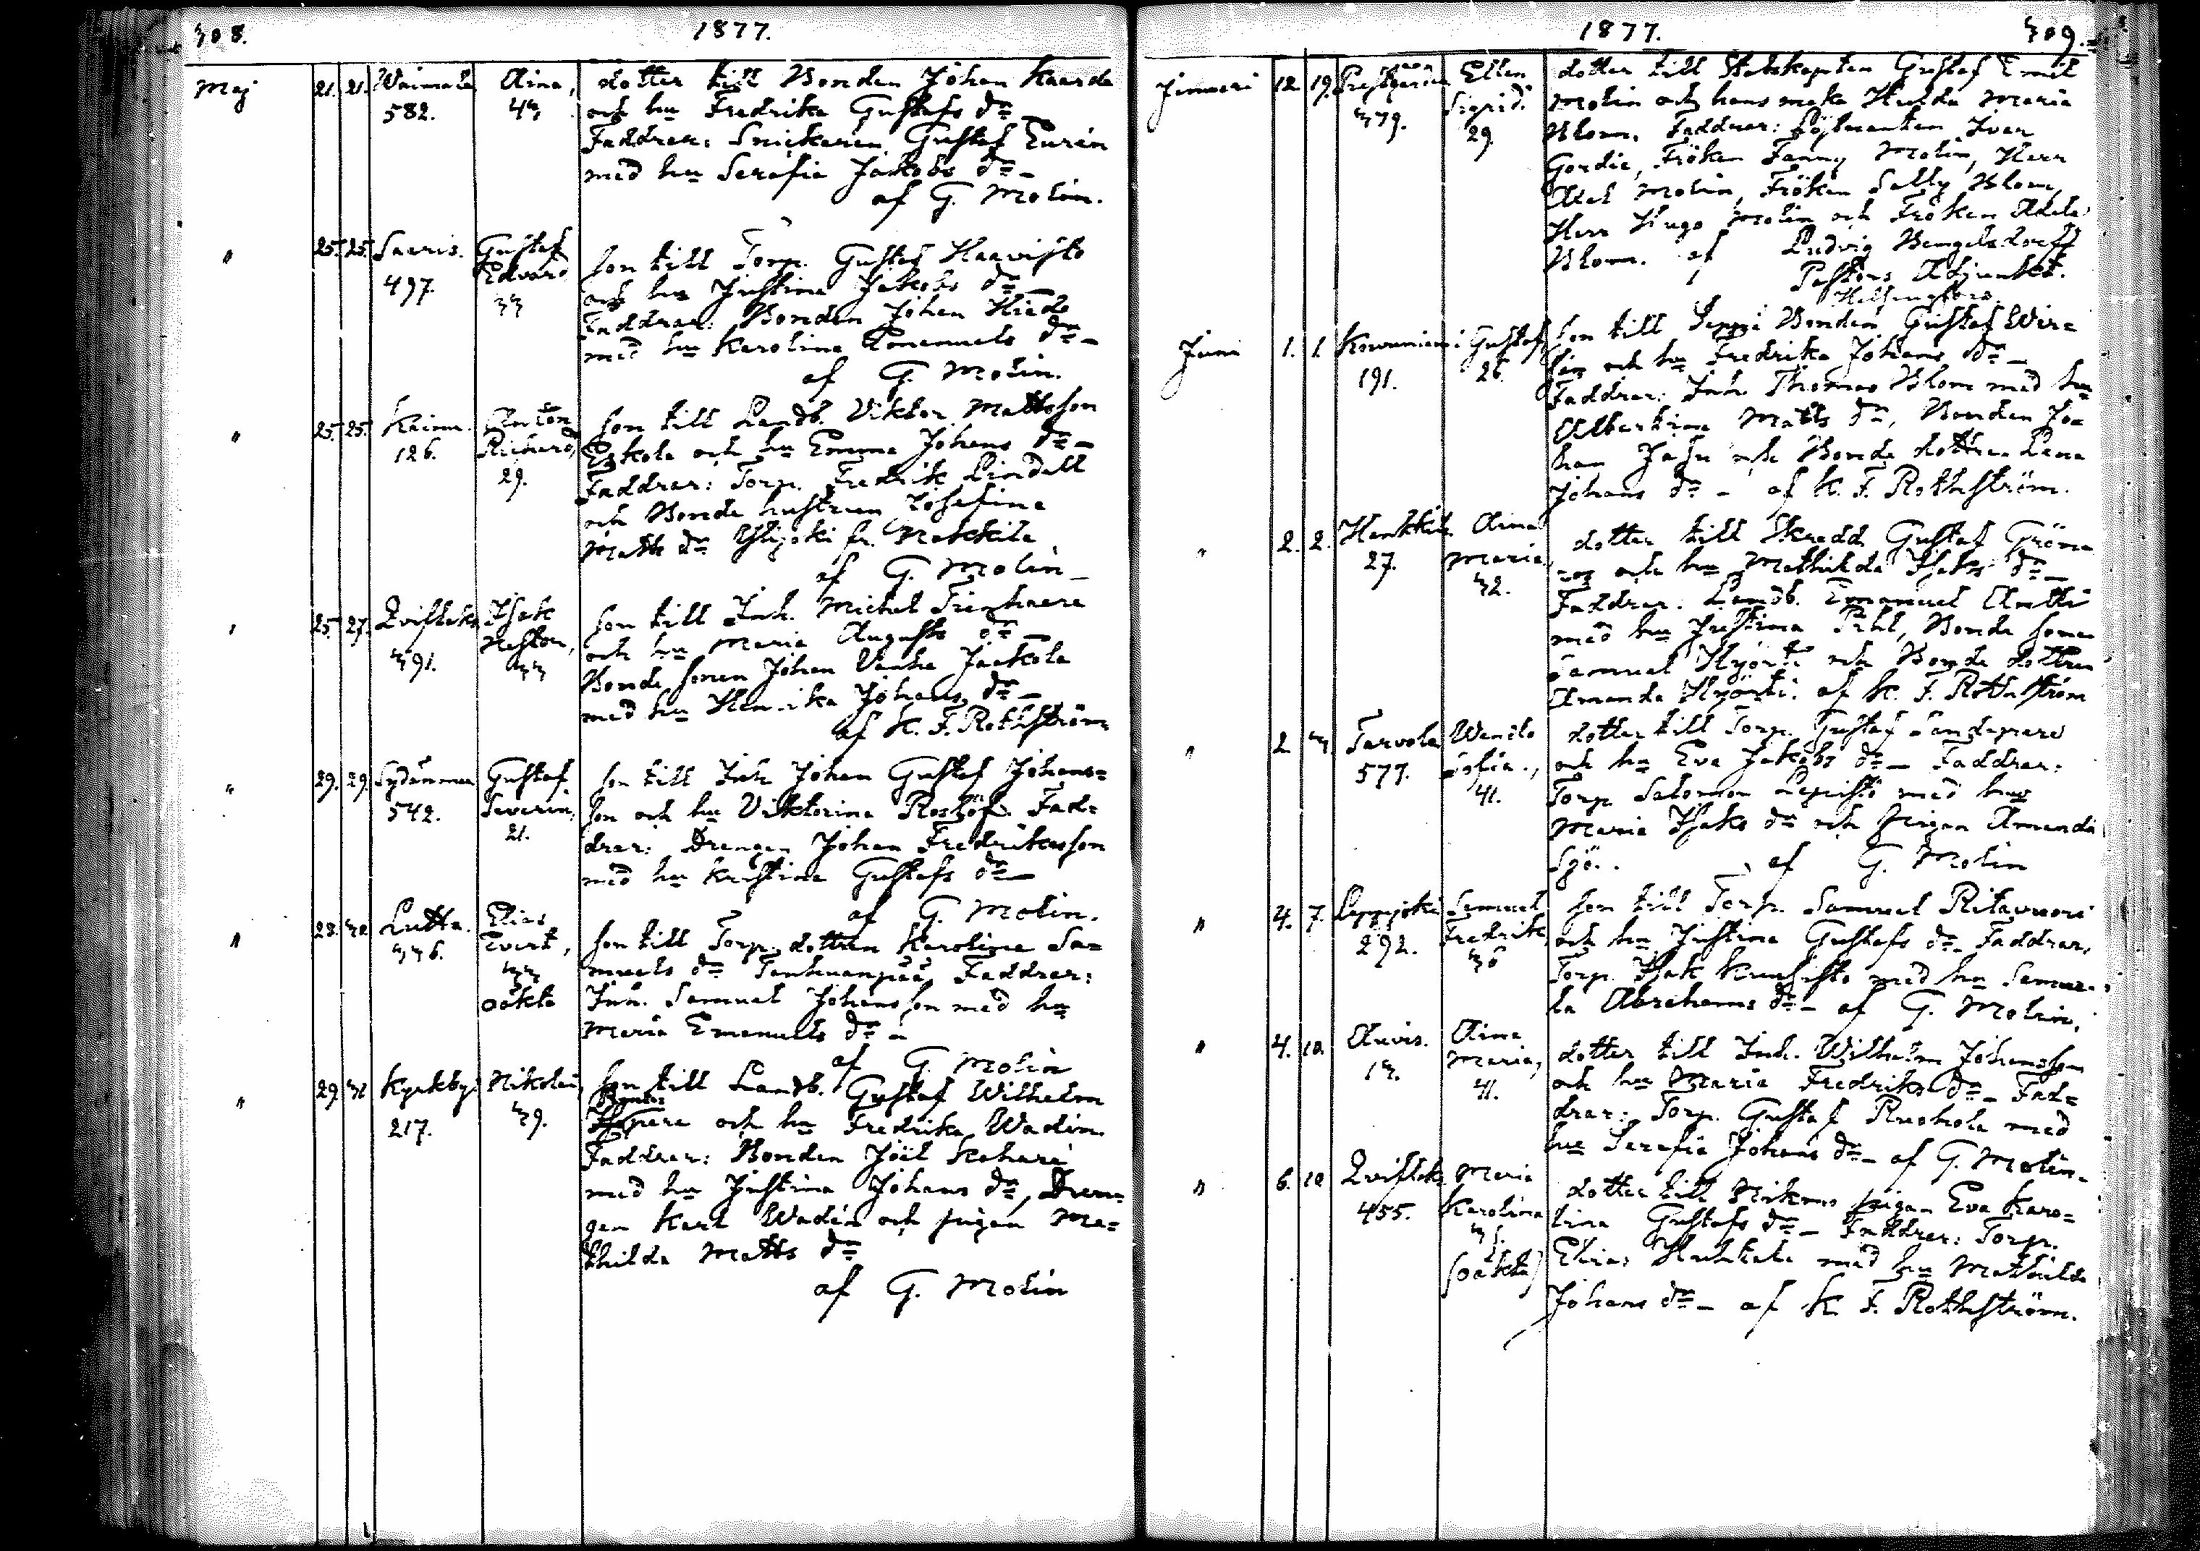 308. 1877.
Maj 21. 21. Waimala 582. Aina, 43 dotter till Bonden Johan Kaarda
och hu Fredrika Gustafs dr
Faddrar: Snickaren Gustaf Eurén
med hu Serafia Jakobs dr
af G. Molin.
" 25. 25. Saaris. 497. Gustaf Edvard 33 son till Torp. Gustaf Haavisto
och hu Justina Jakobs dr
Faddrar: Bonden Johan Hiedo
med hu Karolina Emanuels dr
af G. Molin.
" 25. 25. Kaim. 126. Anton Richard, 29. son till Landb. Viktor Mattsson
Eskola och hu Emma Johans dr
Faddrar: Torp. Fredrik Lindell
och Bonde hustrun Josefina
Matts dr Ylijoki fr. Nakkila
af G. Molin
" 25. 27. Qvistek 391. Isak Nestor, 33 son till Inh. Michel
och hu Maria Augusts dr
Bonde sonen Johan Vanha Jaakola
med hu Henrika Johans dr
af K. F. Rothström
" 29. 29. Sydänmaa 542. Gustaf Severin, 21. son till Inh Johan Gustaf Johans-
son och hu Viktorina Fad-
drar: Drengen Johan Fredriksson
med hu Kristina Gustafs dr
af G. Molin.
" 28. 30. Lutta. 336. Elias Evert, 33 oäkta son till Torp. dottren Karolina Sa-
muels dr Tenhuanpää Faddrar:
Inh. Samuel Johansson med hu
Maria Emanuels dr
af G. Molin
" 29. 31 Kyrkby. 217. Nikolai, 39. son till Landb. Gustaf Wilhelm
och hu Fredrika Wadin.
Faddrar: Bonden Joël Kahari
med hu Justina Johans dr, Dren-
gen Karl Wadén och pigan Ma-
thilda Matts dr
af G. Molin
1877. 309.
Januari 12 19. Prestgården 379. Ellen Sigrid 29. dotter till Stabskapten Gustaf Emil
Molin och hans maka Hulda Maria
Blom. Faddrar: Löjtnanten Iver
Gordie, Fröken Fanny Molin, Herr
Axel Molin, Fröken Selly Blom,
Herr Hugo Molin och Fröken Adele
Blom. af Ludvig Wengelsdorff
Pastors Adjunkt.
Helsingfors.
Juni 1. 1 191. Gustaf, 26. son till Seppi Bonden Gustaf Wir-
och hu Fredrika Johans dr
Faddrar: Inh. Thomas Blom med hu
Albertina Matts dr, Bonden Jo-
han och Bonde dottren Lena
Johans dr af K. F. Rothström.
" 2. 2. 27. Aina Maria, 32. dotter till Skredd. Gustaf Grön
och hu Mathilda Isaks dr
Faddrar: Landb. Emanuel Antti
med hu Justina Prhl, Bonde sonen
Samuel Hyörti och Bonde dottren
Amanda Hyörti. af K. F. Rothström
" 2 3 Tarvola 577. Wendla Sofia., 41. dotter till Torp. Gustaf
och hu Eva Jakobs dr Faddrar:
Torp. Salomon Lepistö med hu
Maria Isaks dr och pigan Amanda
Sjö. af G. Molin
" 4. 7. Leppijoki 292. Samuel Fredrik 36 son till Torp. Samuel Ritavuori
och hu Justina Gustafs dr Faddrar,
Torp. Isak Kuusisto med hu Samue-
la Abrahams dr af G. Molin.
" 4. 10. Anvis. 13. Aina Maria, 41. dotter till Inh. Wilhelm Johansson
och hu Maria Fredriks dr Fad-
drar: Torp. Gustaf Ruohola med
hu Serafia Johans dr af G. Molin.
" 6. 10 Qvistek 455. Maria Karolina 35. (oäkta) dotter till Nikmo pigan Eva Karo-
lina Gustafs dr Faddrar: Torp.
Elias med hu Mathilda
Johans dr af K. F. Rothström.